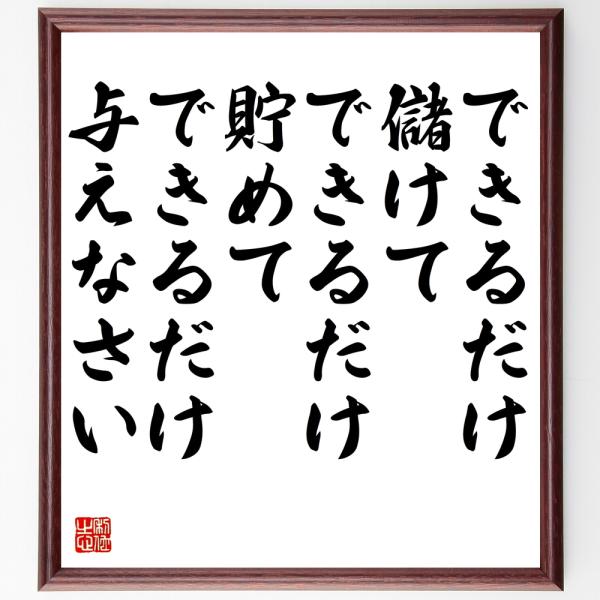 できるだけ
儲けて
できるだけ
貯めて
できるだけ
与えなさい